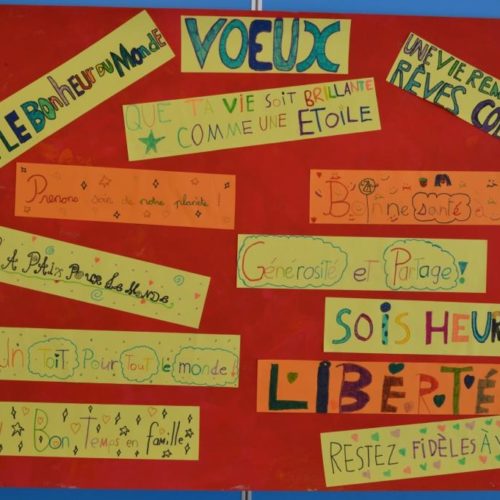 VOEUX
LE BONHEUR DU MONDE
UNE VIE
RÊVES
QUE TA VIE SOIT BRILLANTE
COMME UNE ETOILE
Prenons soin de notre planète !
Bonne santé
LA PAIX POUR LE MONDE
Générosité et Partage !
SOIS
Un toit Pour tout le monde !
LIBERTÉ
! Bon Temps en famille
RESTEZ FIDÈLES À